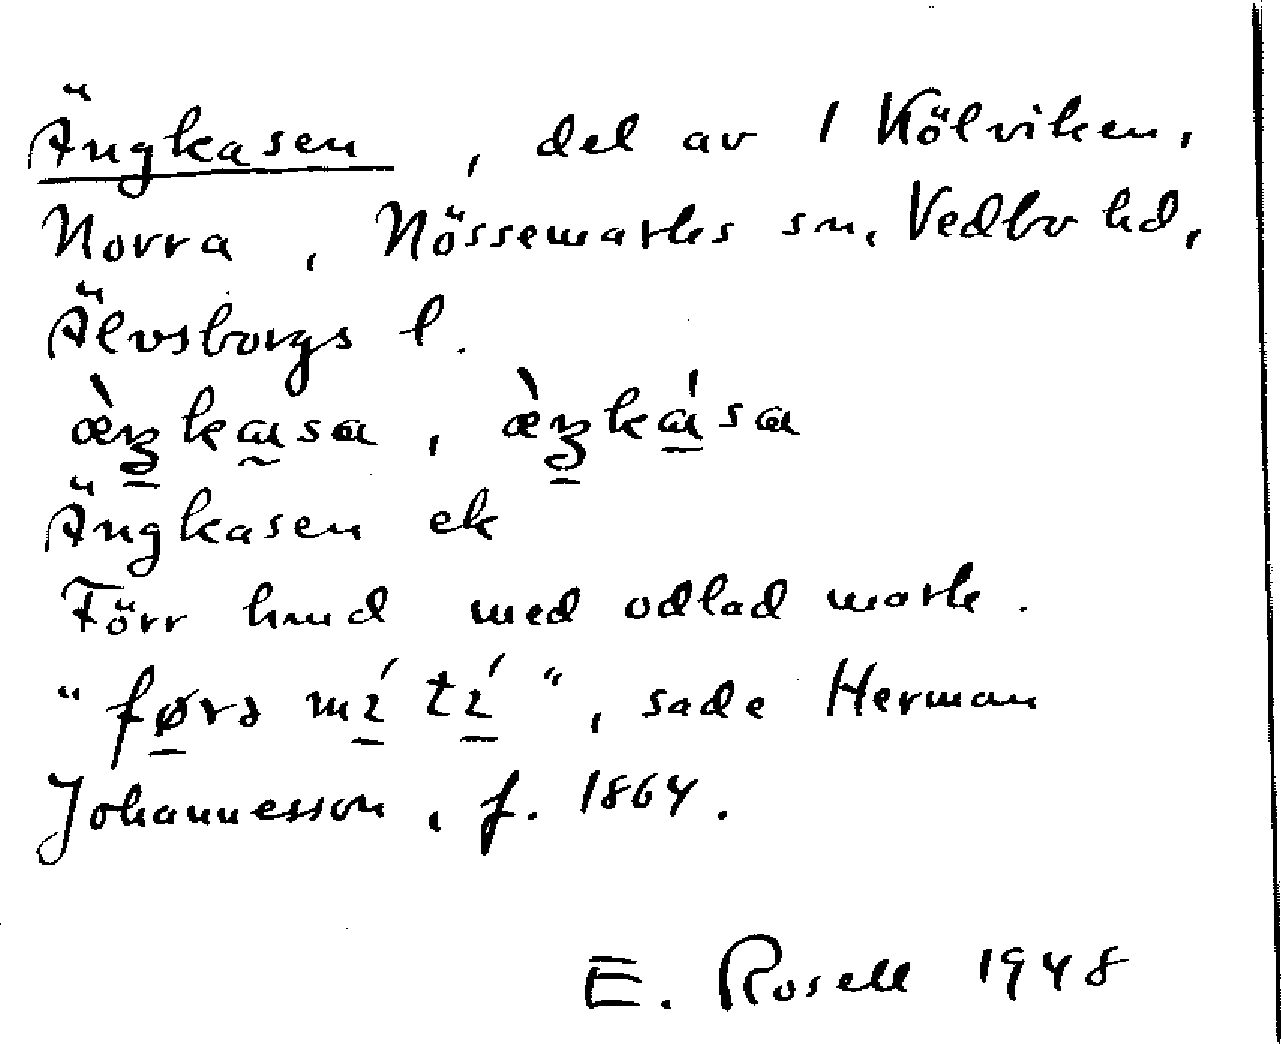 Ängkasen, del av 1 Kölviken,
Norra, Nössemarks sn, Vedbo hd,
Älvsborgs l.
æ̀ŋkasa, æ̀ŋkása
Ängkasen ek
Förr hmd med odlad mark.
"førs mí tí", sade Herman
Johannesson, f. 1864.
E. Rosell 1948